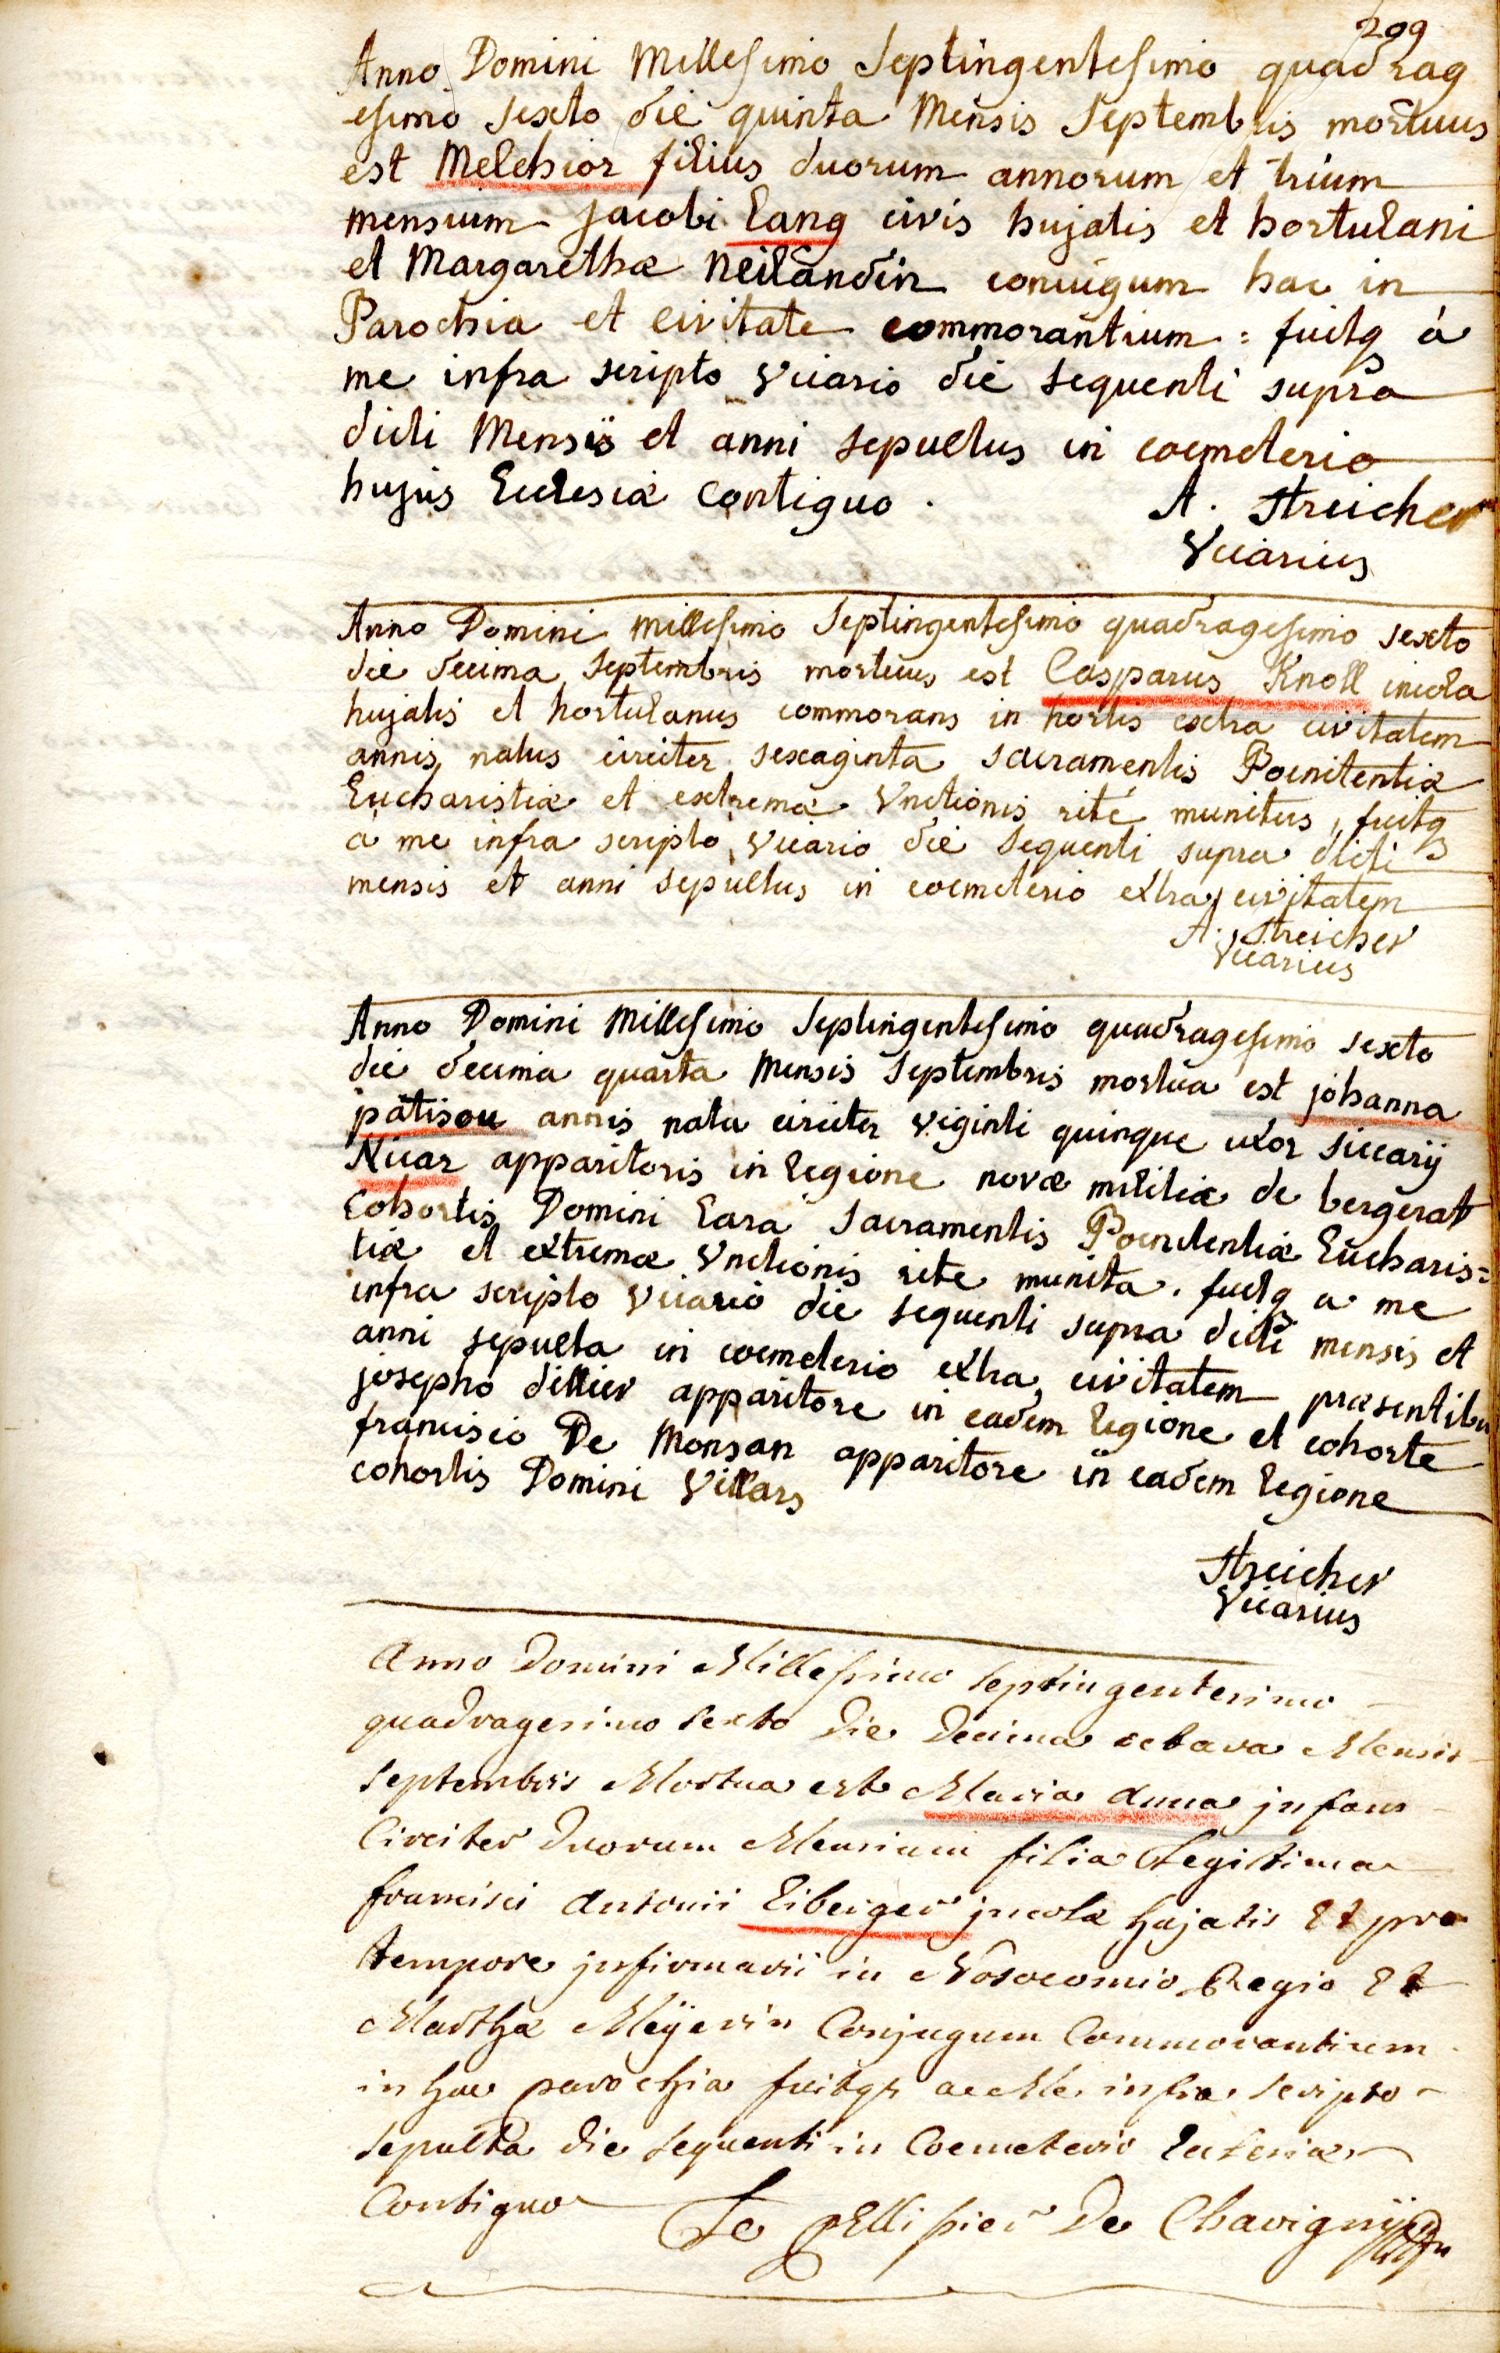 209
Anno Domini Millesimo Septingentesimo quadrag
esimo sexto die quinta Mensis Septembris mortuus
est Melchior filius duorum annorum et trium
mensium Jacobi Lang civis hujatis et hortulani
et Margarethæ Neilandin coniugum hac in
Parochia et civitate commorantium : fuitq á
me infra scripto Vicario die sequenti supra
dicti Mensis et anni sepultus in coemeterio
hujus Ecclesiæ contiguo .
A. Streicher
Vicarius
Anno Domini millesimo Septingentesimo quadragesimo sexto
die decima Septembris mortuus est Casparus Knoll incola
hujatis et hortulanus commorans in hortis extra civitatem
annis natus circiter sexaginta sacramentis Poenitentiæ
Eucharistiæ et extremæ Unctionis rité munitus, fuitq
á me infra scripto Vicario die sequenti supra dicti
mensis et anni sepultus in coemeterio extra civitatem
A. Streicher
Vicarius
Anno Domini Millesimo Septingentesimo quadragesimo sexto
die decima quarta Mensis Septembris mortua est johanna
patisou annis nata circiter viginti quinque uxor siccarij
Nicar apparitoris in legione novæ militiæ de bergerat
Cohortis Domini Lara Sacramentis Poenitentiæ Eucharis=
tiæ et extremæ Unctionis rite munita . fuitq a me
infra scripto Vicario die sequenti supra dicti mensis et
anni sepulta in coemeterio extra civitatem præsentibu
josepho dillier apparitore in eadem legione et cohorte
francisco De Monsan apparitore in eadem legione
cohortis Domini Villars
Streicher
Vicarius
Anno Domini Millesimo septingentesimo
quadragesimo sexto Die Decima octava Mensis
Septembris Mortua est Maria Anna jnfans
Circiter Duorum Mensium filia Legitima
francisci Antonii Eiberger jncolæ hujatis Et pro
tempore jnfirmarii in Nosocomio Regio Et
Marthæ Meÿerin Conjugum Commorantium
in hac parochia fuitqz a Me infra scripto
sepulta die sequenti in Coemeterio Ecclesiæ
Contiguo Le Pellisier De Chavignÿ